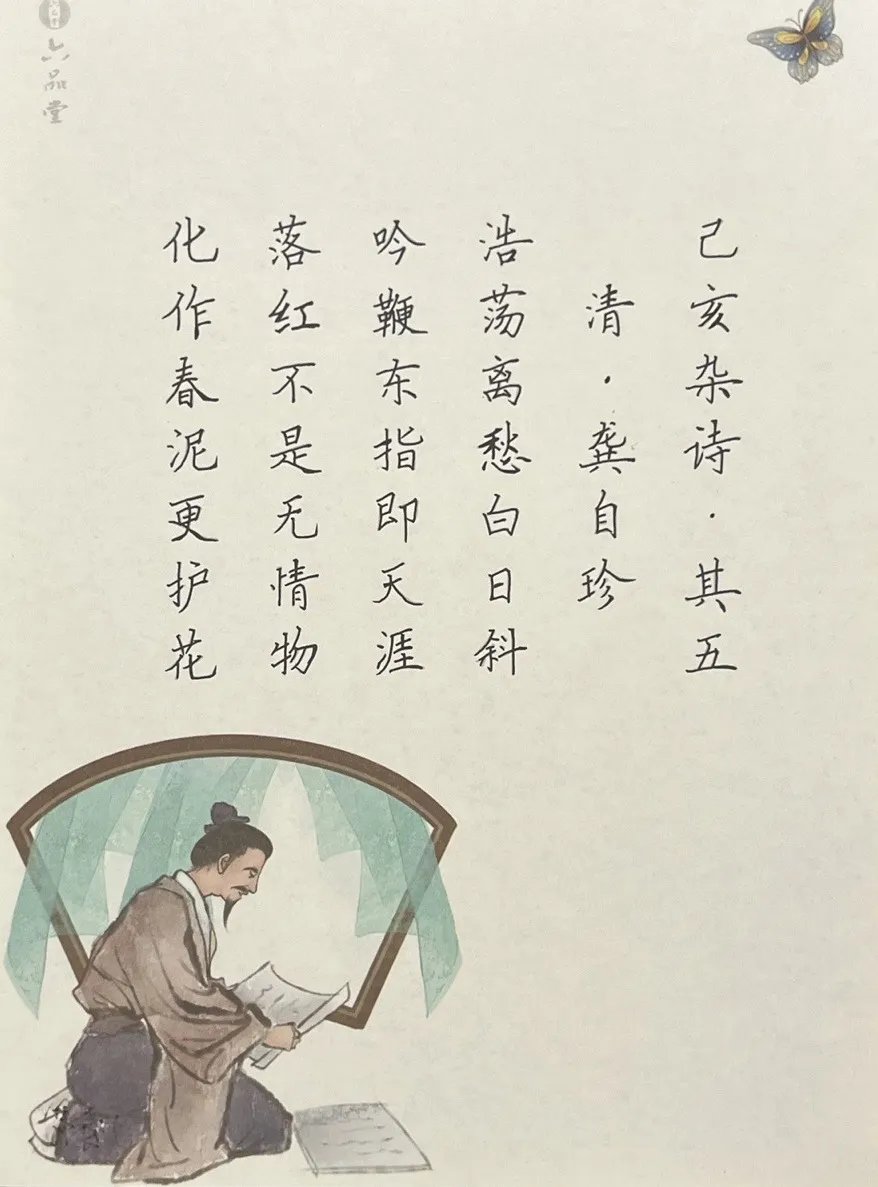 己亥杂诗·其五
清·龚自珍
浩荡离愁白日斜
吟鞭东指即天涯
落红不是无情物
化作春泥更护花
六品堂